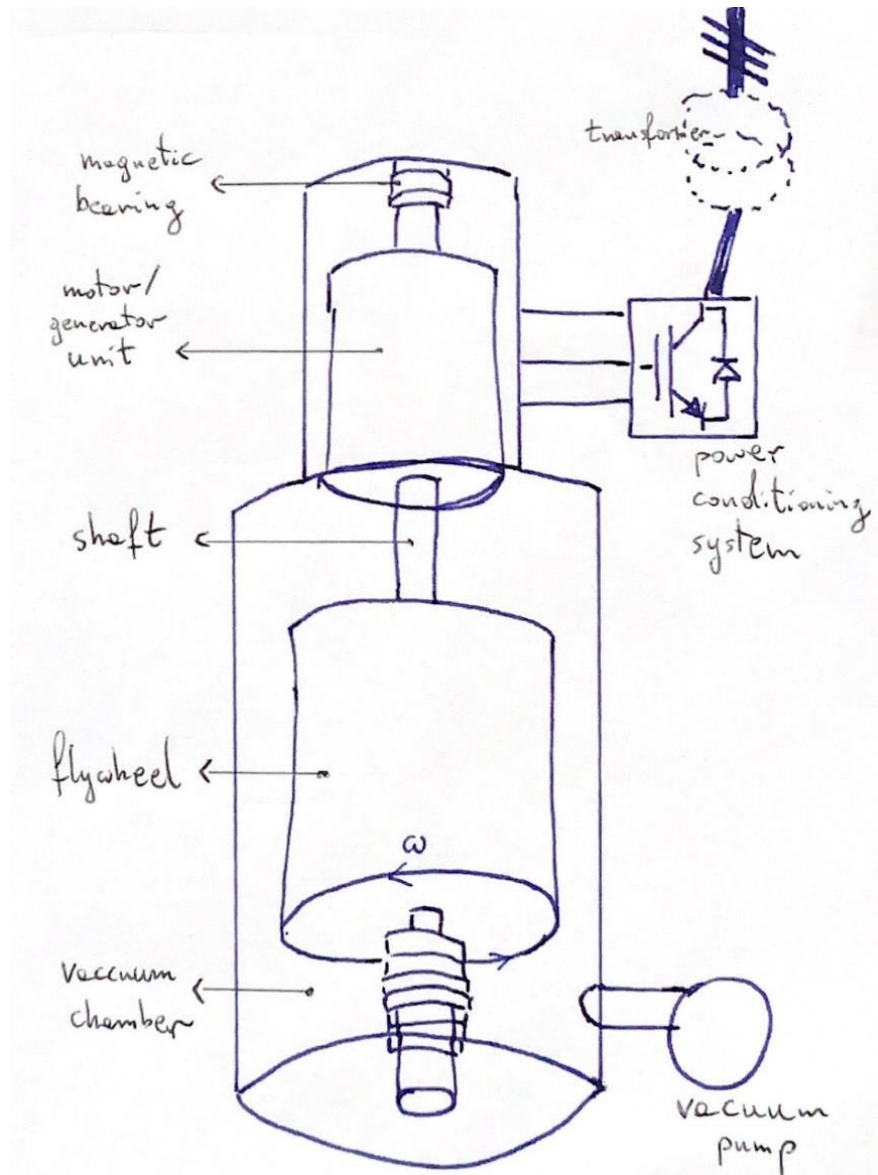 transformer
magnetic
bearing
motor/
generator
unit
power
conditioning
system
shaft
flywheel
ω
vaccuum
chamber
vacuum
pump